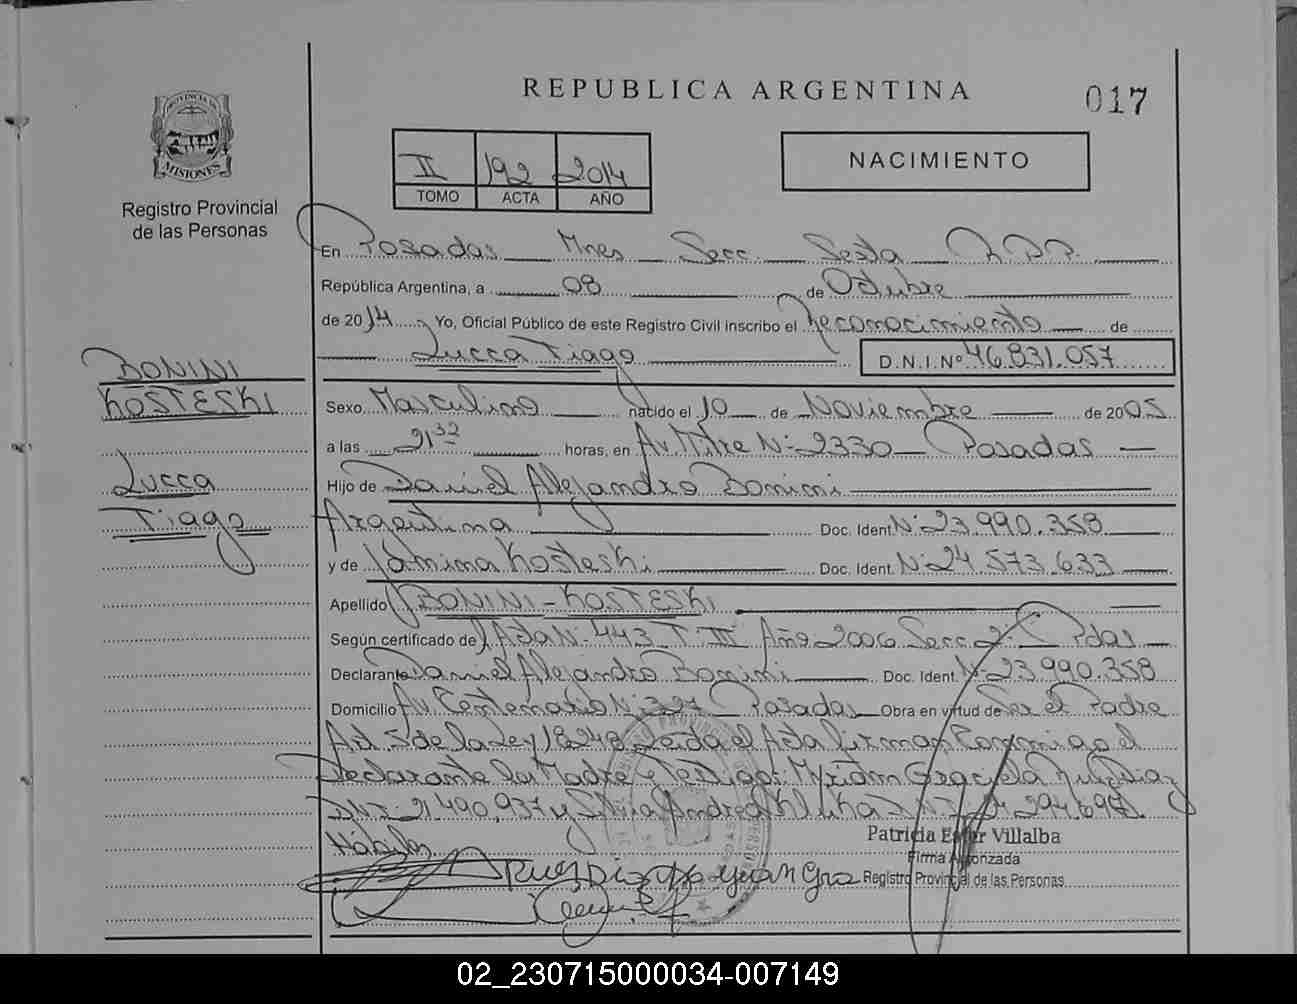 REPUBLICA ARGENTINA
017
PROVINCIA DE
MISIONES
Registro Provincial
de las Personas
II 192 2014
TOMO ACTA AÑO
NACIMIENTO
En Posadas Mnes Secc Sexta R.P.P.
República Argentina, a 08 de Octubre
de 2014 Yo, Oficial Público de este Registro Civil inscribo el Reconocimiento de
Lucca Tiago D.N.I. Nº 46.831.057
BONINI
KOSTESKI
Lucca
Tiago
Sexo Masculino nacido el 10 de Noviembre de 2005
a las 21 32 horas, en Av. Mitre Nº 2330 - Posadas
Hijo de Daniel Alejandro Bonini
Argentina Doc. Ident. Nº 23.990.358
y de Kosteski Doc. Ident. Nº 24.573.633
Apellido BONINI - KOSTESKI
Según certificado de Acta Nº 443 T III Año 2006 Secc 2º Pdas
Declarante Daniel Alejandro Bonini Doc. Ident. Nº 23.990.358
Domicilio Av. Centenario Nº Posadas Obra en virtud de Ser el Padre
Art. 5 de la Ley 18248 Leida el Acta firman Conmigo el
Declarante la Madre y Testigos: Myrian Graciela
D.N.I. 21.490.937 y Silvia Andrea D.N.I.
Hábiles
Patricia Ester Villalba
Firma Autorizada
Registro Provincial de las Personas
02_230715000034-007149